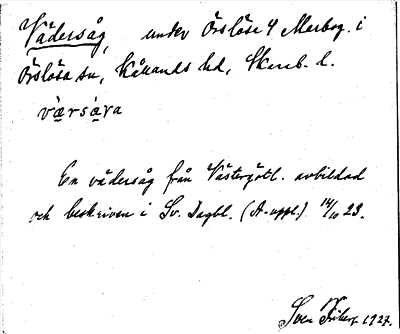 Vädersåg, under Örslösa 4 Marbog. i
Örslösa sn, Kållands hd, Skarab. l.
va̤rsa̤va
En vädersåg från Västergötl. avbildad
och beskriven i Sv. Dagbl. (A-uppl.) 14/10 23.
Sven Friberg 1927.